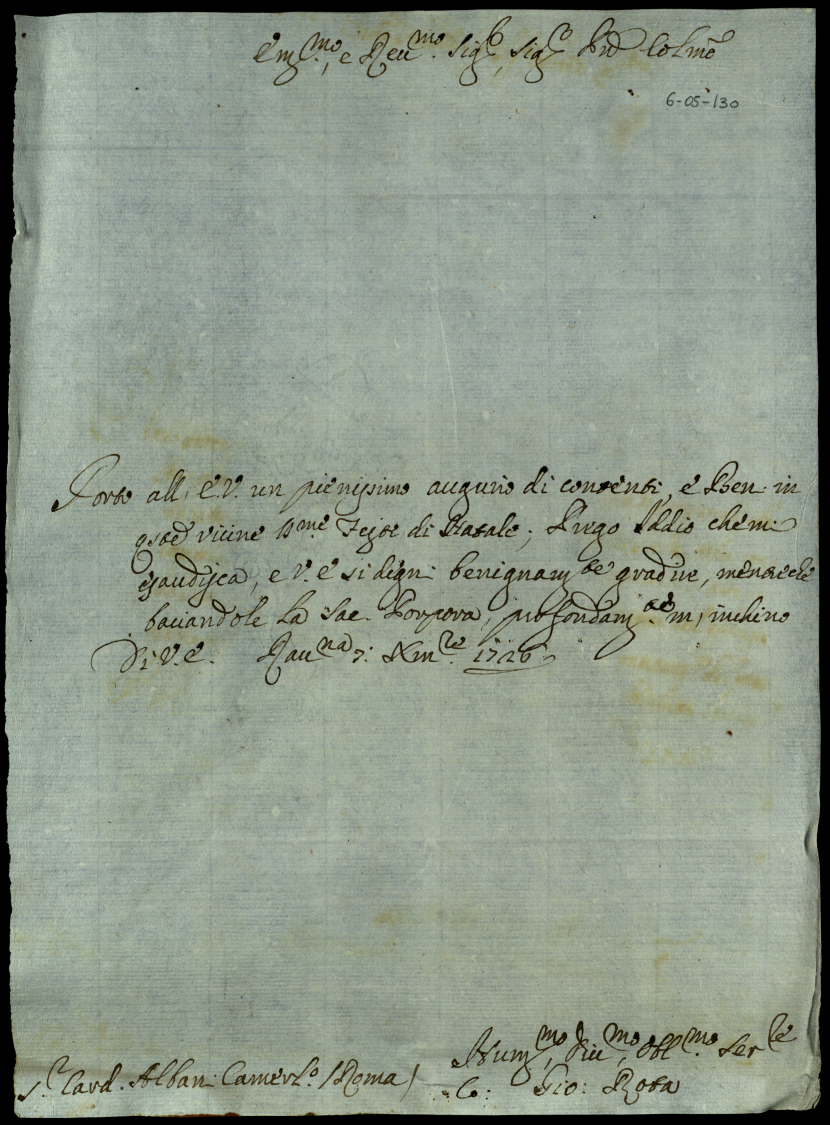 Em.mo, e Reu.mo Sig.r, Sig.r Prõ Colmõ
6-05-130
Porto all, E.V. un pienissimo augurio di contenti, e Ben in
qste vicine SS.me Feste di Natale; Priego Iddio che mi
esaudisca, e V.E. si degni benignam.te gradire, mentre che
baciandole la Sac. Porpora, profondam.te m, inchino
Di V.E. Rau.na 7: Xm.re 1726
Hum.mo, Diu.mo, Obl.mo Ser.re
S.r Card. Alban: Camerl.o /Roma/ Co: Gio: Rota